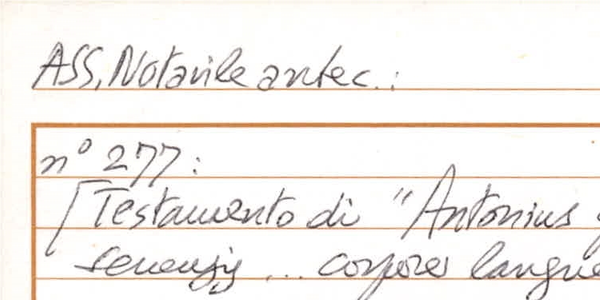 ASS, Notarile antec.:
n° 277:
[Testamento di "Antonius
senensis ... corpore langue